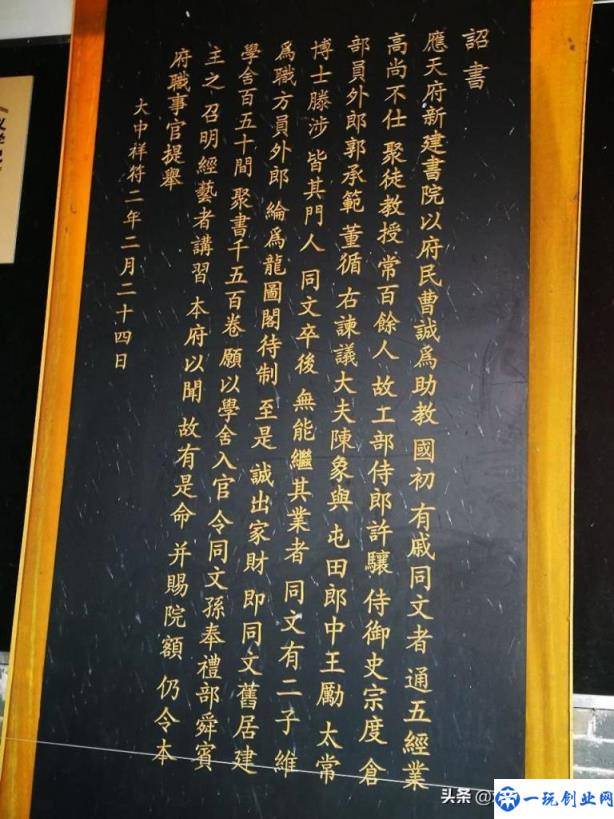 詔書
應天府新建書院以府民曹誠爲助教 國初 有戚同文者 通五經業
高尚不仕 聚徒教授 常百餘人 故工部侍郎許驤 侍御史宗度 倉
部員外郎郭承範 董循 右諫議大夫陳象與 屯田郎中王勵 太常
博士滕涉 皆其門人 同文卒後 無能繼其業者 同文有二子 維
爲職方員外郎 綸爲龍圖閣待制 至是 誠出家財 即同文舊居建
學舍百五十間 聚書千五百卷 願以學舍入官 令同文孫奉禮部舜賓
主之 召明經藝者講習 本府以聞 故有是命 并賜院額 仍令本
府職事官提舉
大中祥符二年二月二十四日
头条
一玩创业网